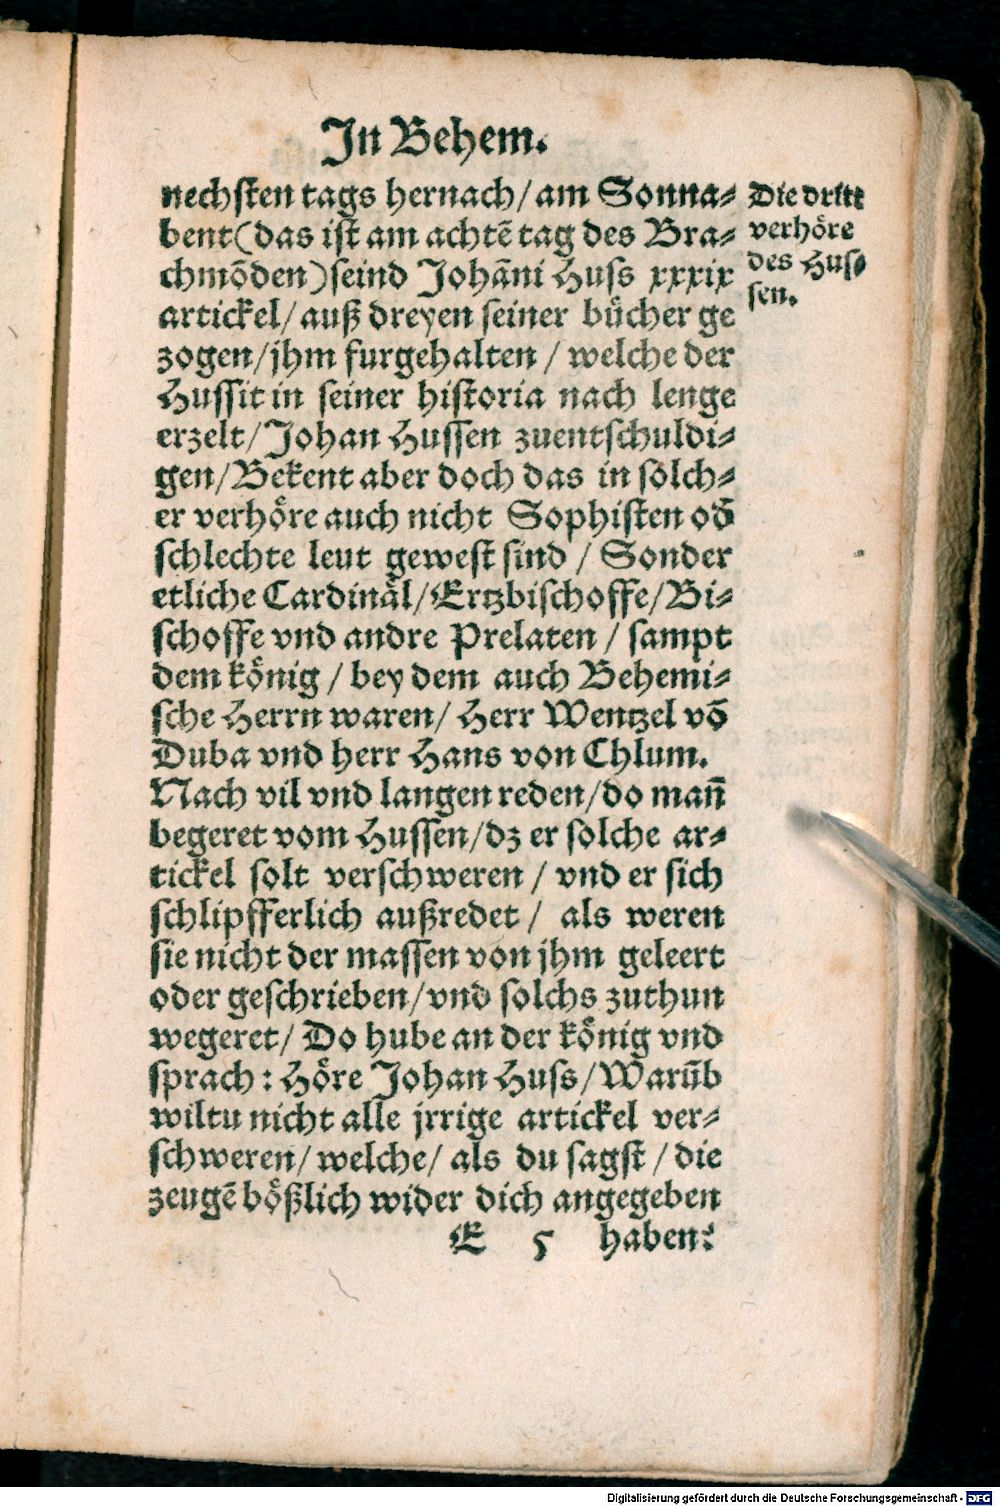 In Behem.
nechsten tags hernach/ am Sonna⸗
bent(das ist am achtē tag des Bra⸗
chmōden)seind Johāni Huss xxxix
artickel/ auß dreyen seiner bůcher ge
zogen/jhm furgehalten / welche der
Hussit in seiner historia nach lenge
erzelt/Johan Hussen zuentschuldi⸗
gen/Bekent aber doch das in solch⸗
er verhöre auch nicht Sophisten od̄
schlechte leut gewest sind / Sonder
etliche Cardinäl/Ertzbischoffe/Bi⸗
schoffe vnd andre Prelaten / sampt
dem könig / bey dem auch Behemi⸗
sche Herrn waren/ Herr Wentzel vō
Duba vnd herr Hans von Chlum.
Nach vil vnd langen reden/do man̄
begeret vom Hussen/dz er solche ar⸗
tickel solt verschweren / vnd er sich
schlipfferlich außredet / als weren
sie nicht der massen von jhm geleert
oder geschrieben/vnd solchs zuthun
wegeret/ Do hube an der könig vnd
sprach: Höre Johan Huss/Warūb
wiltu nicht alle jrrige artickel ver⸗
schweren/ welche/ als du sagst / die
zeugē bößlich wider dich angegeben
E 5 haben?
Die dritt
verhöre
des Hus⸗
sen.
Digitalisierung gefördert durch die Deutsche Forschungsgemeinschaft - DFG